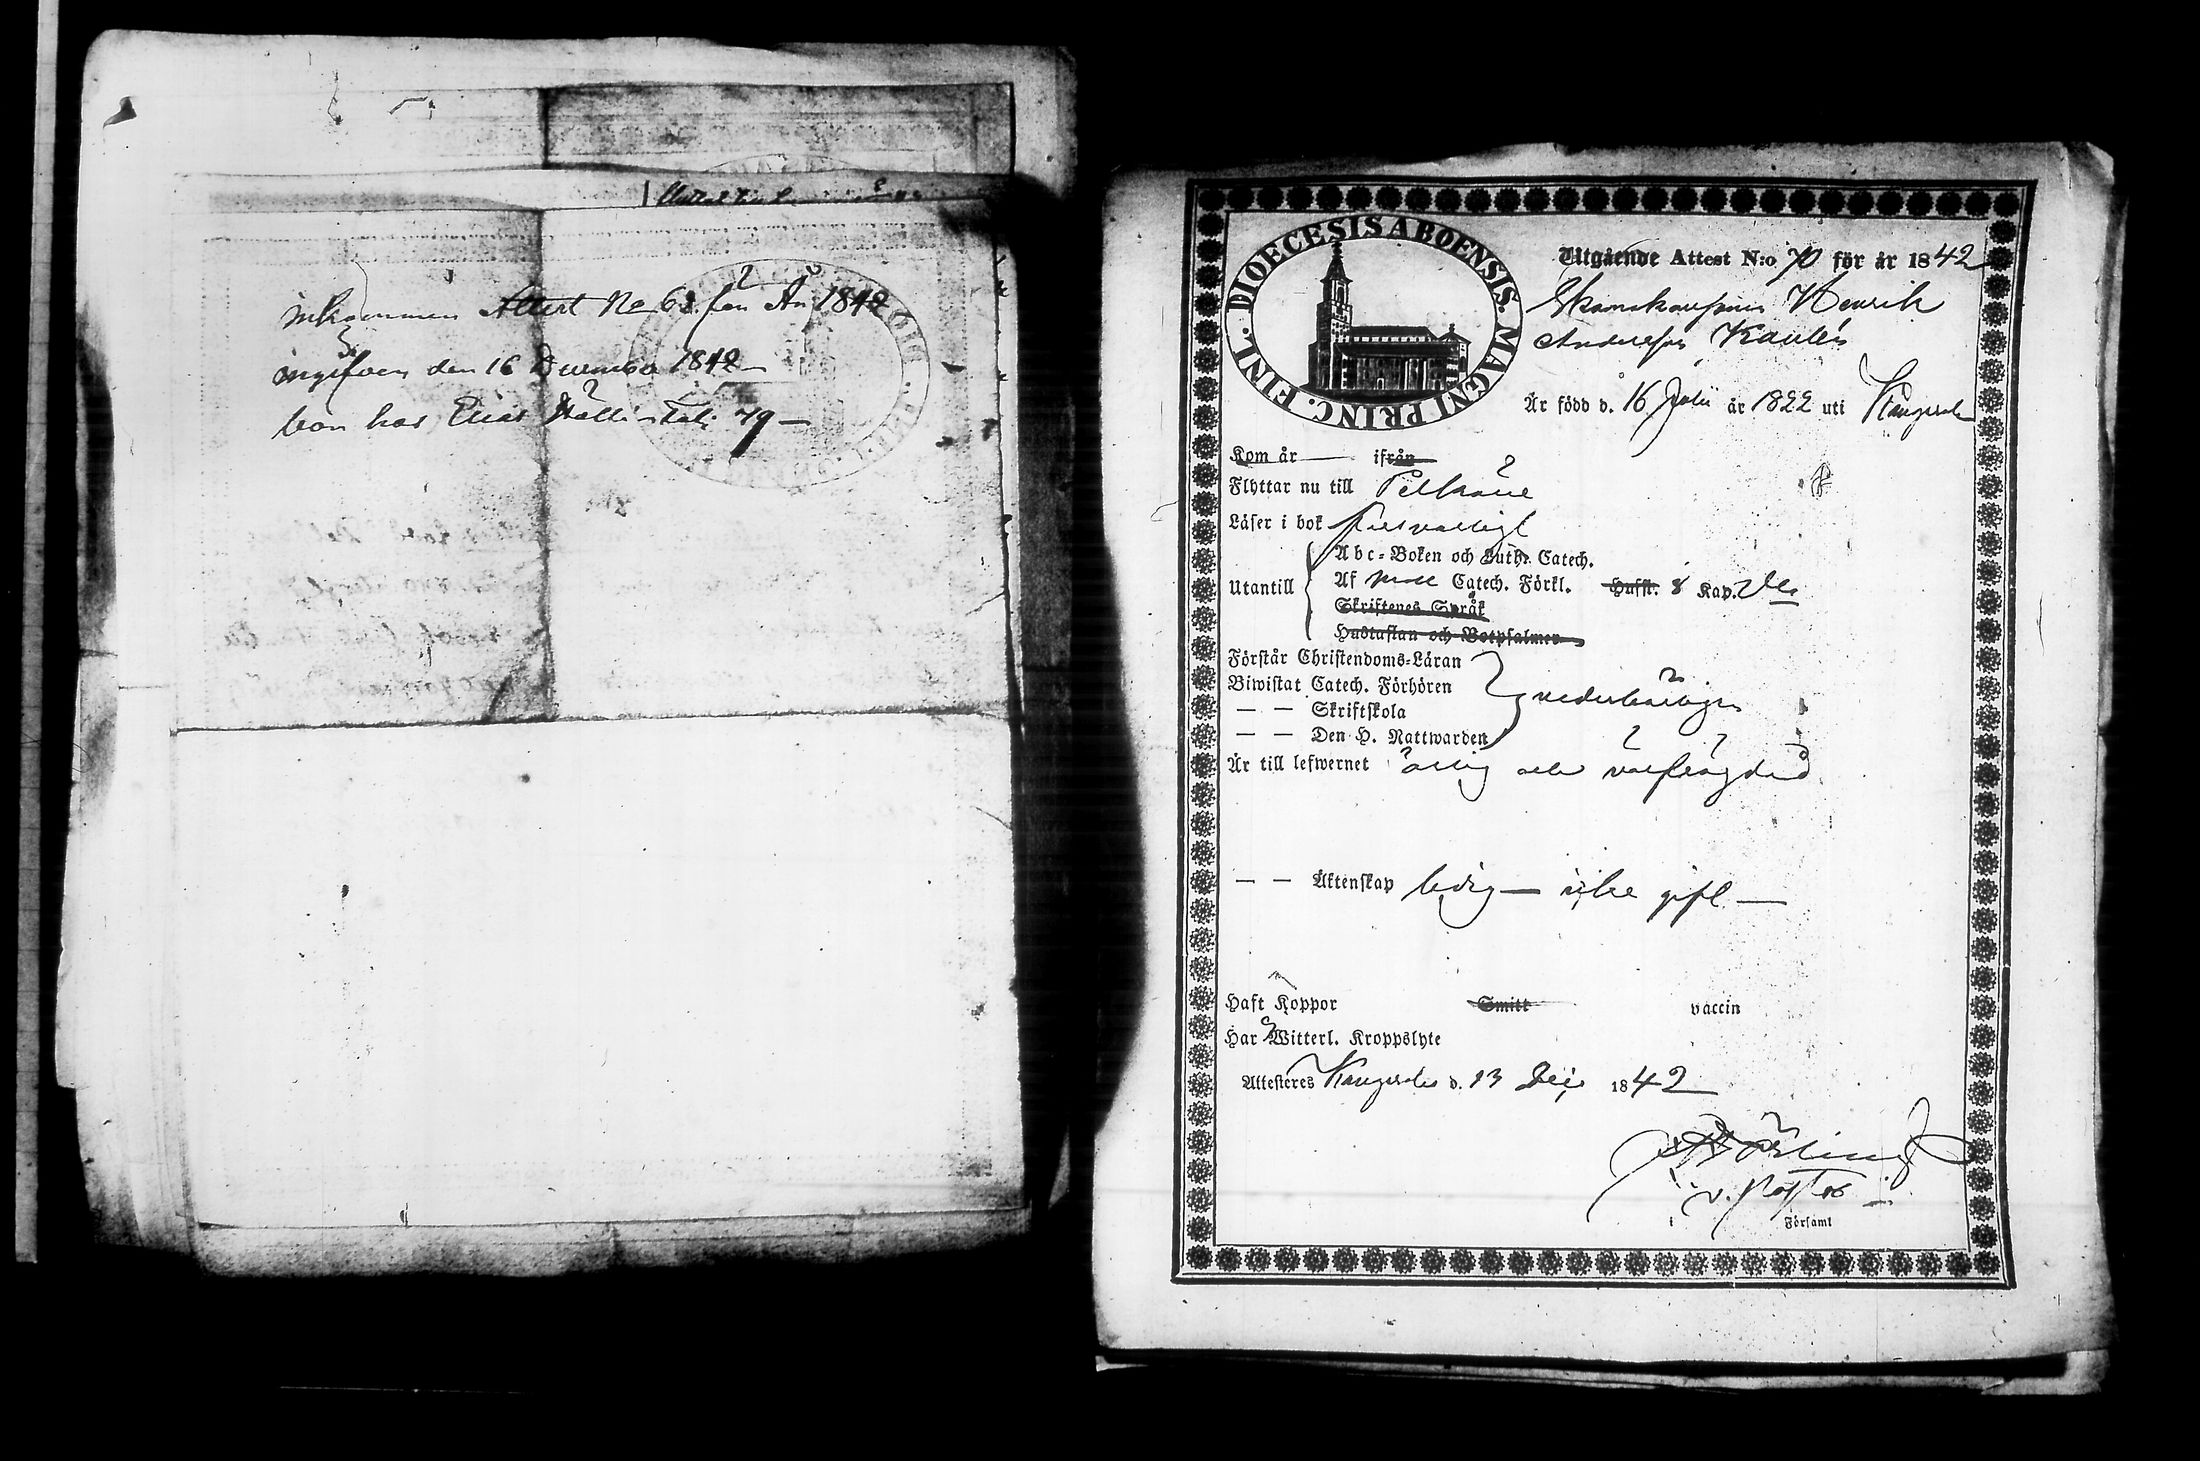 Inkommen Attest No 63 för År 1842
ingifven den 16 December 1842
bor hos Elias Mattinkali 79
DIOECESIS ABOENSIS. MAGNI PRINC. FINL.
Utgående Attest N:o 70 för år 1842
Henrik
Andersson
Är född d. 16 Julii år 1822 uti Kangasala
Kom år — ifrån
Flyttar nu till Pelkäne
Läser i bok försvarligt
Utantill
Abc-Boken och Luth. Catech.
Af Catech. Förkl. Husst. 8 Kap.
Skriftenes Språk
Hustaflan och Botpsalmer
Förstår Christendoms-Läran
Biwistat Catech. Förhören vederbörligen
— — Skriftskola
— — Den H. Nattwarden
Är till lefwernet ärlig och välfrägdad
— — Äktenskap ledig — icke gift —
Haft Koppor Smitt vaccin
Har Witterl. Kroppslyte
Attesteres Kangasala d. 13 Dec. 1842
v. Pastor
i Församl